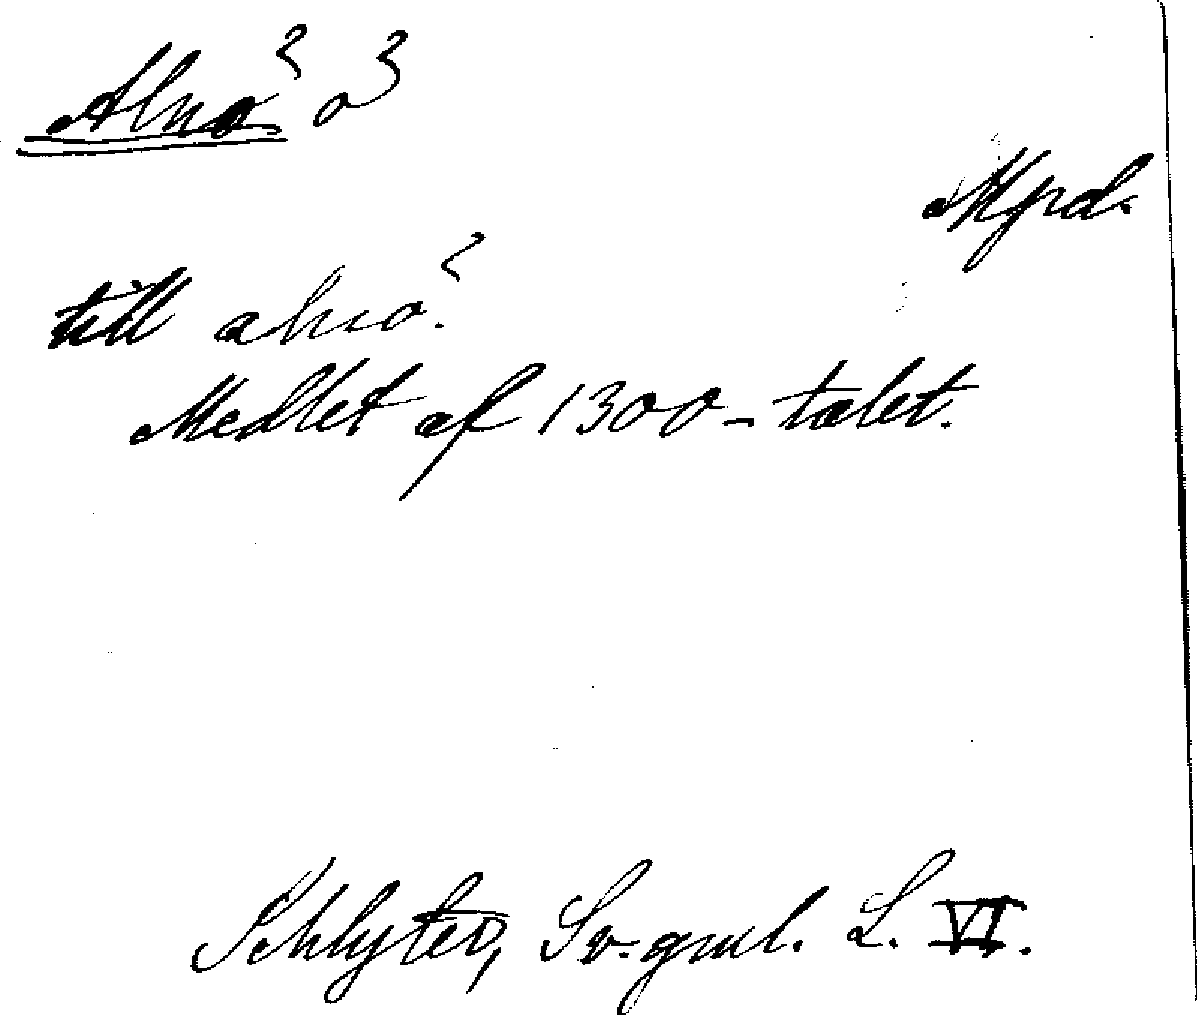 Alnö ö
Mpd.
till alnö.
Medlet af 1300-talet.
Schlyter, Sv. gml. L. VI.